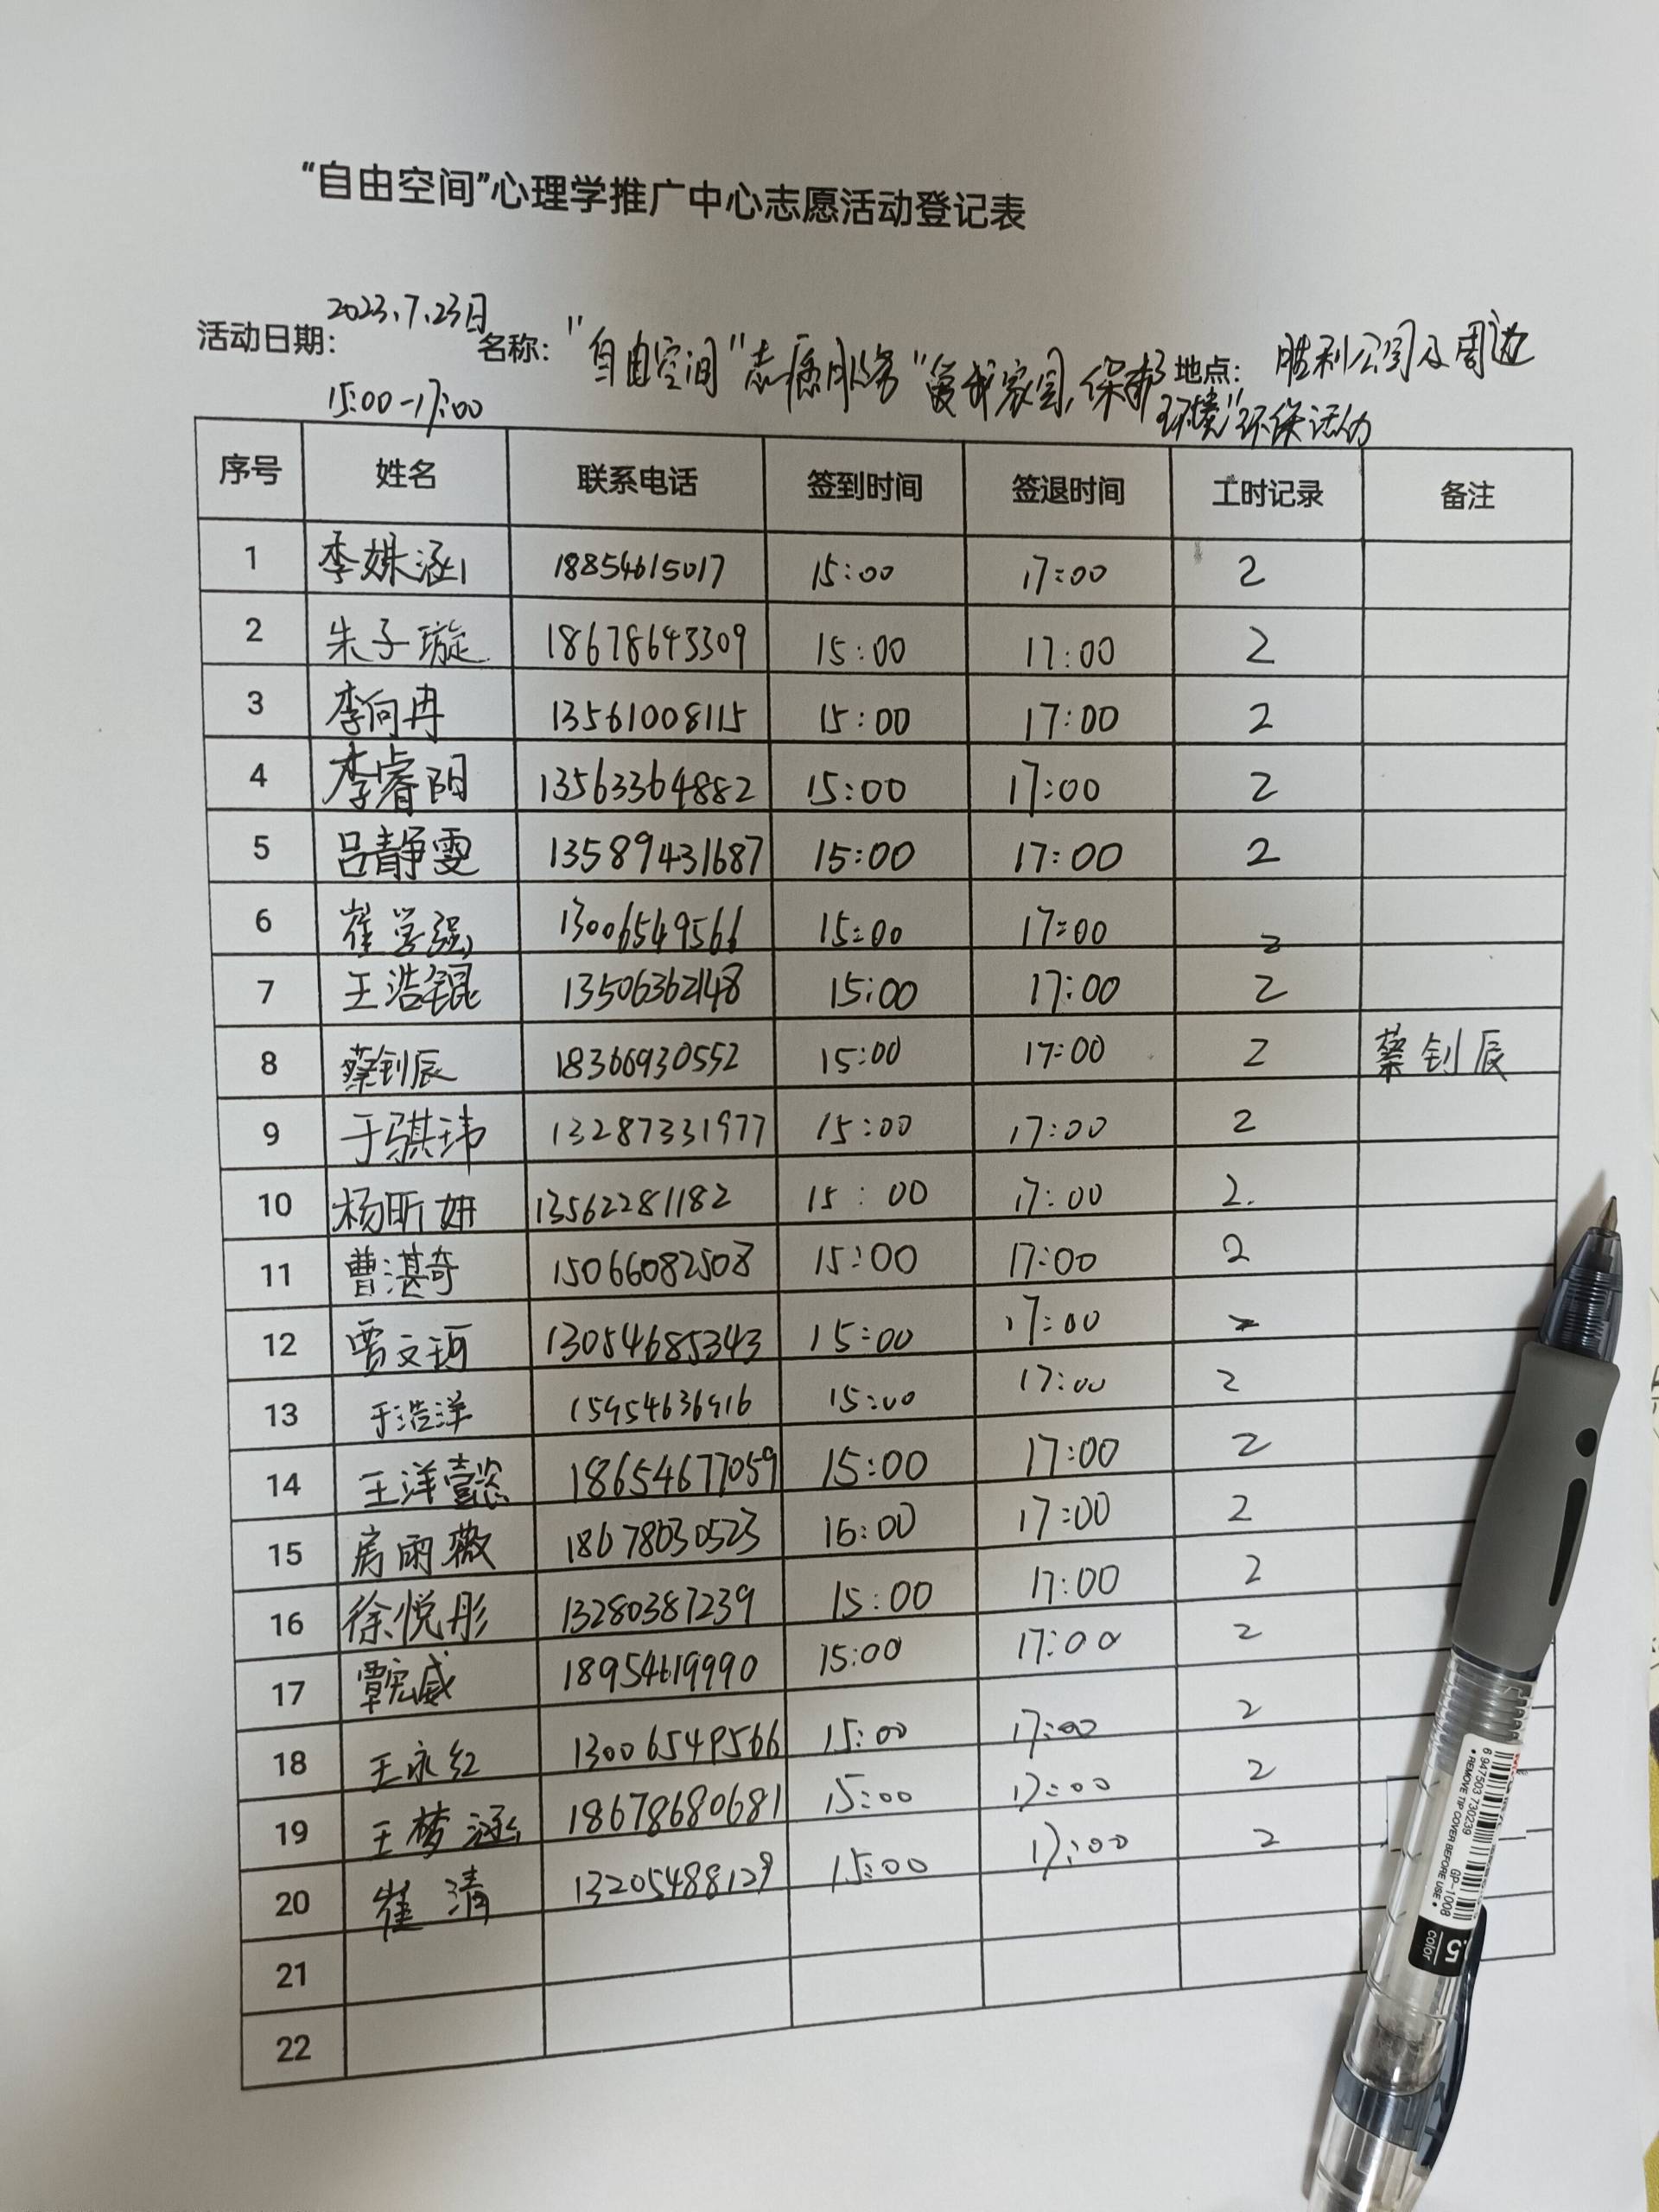 “自由空间”心理学推广中心志愿活动登记表
活动日期: 2023.7.23日 名称: "自由空间"志愿服务"爱我家园,保护 地点: 胜利公园及周边
15:00-17:00 环境"环保活动
序号 姓名 联系电话 签到时间 签退时间 工时记录 备注
1 李姝涵 18854615017 15:00 17:00 2
2 朱子璇 18678643309 15:00 17:00 2
3 李向冉 13561008115 15:00 17:00 2
4 李睿阳 13563364882 15:00 17:00 2
5 吕静雯 13589431687 15:00 17:00 2
6 崔学强 13006549566 15:00 17:00 2
7 王浩锟 13506362148 15:00 17:00 2
8 蔡钊辰 18366930552 15:00 17:00 2 蔡钊辰
9 于骐玮 13287331977 15:00 17:00 2
10 杨昕妍 13562281182 15:00 17:00 2.
11 曹湛奇 15066082508 15:00 17:00 2
12 贾文珂 13054685343 15:00 17:00 2
13 于浩洋 15954636916 15:00 17:00 2
14 王洋懿 18654677059 15:00 17:00 2
15 房雨薇 18678030523 15:00 17:00 2
16 徐悦彤 13280387239 15:00 17:00 2
17 覃宏威 18954619990 15:00 17:00 2
18 王永红 13006549566 15:00 17:00 2
19 王梦涵 18678680681 15:00 17:00 2
20 崔清 13205488129 15:00 17:00 2
21
22
6 947503 730239
• REMOVE TIP COVER BEFORE USE •
GP-1008
.5 color